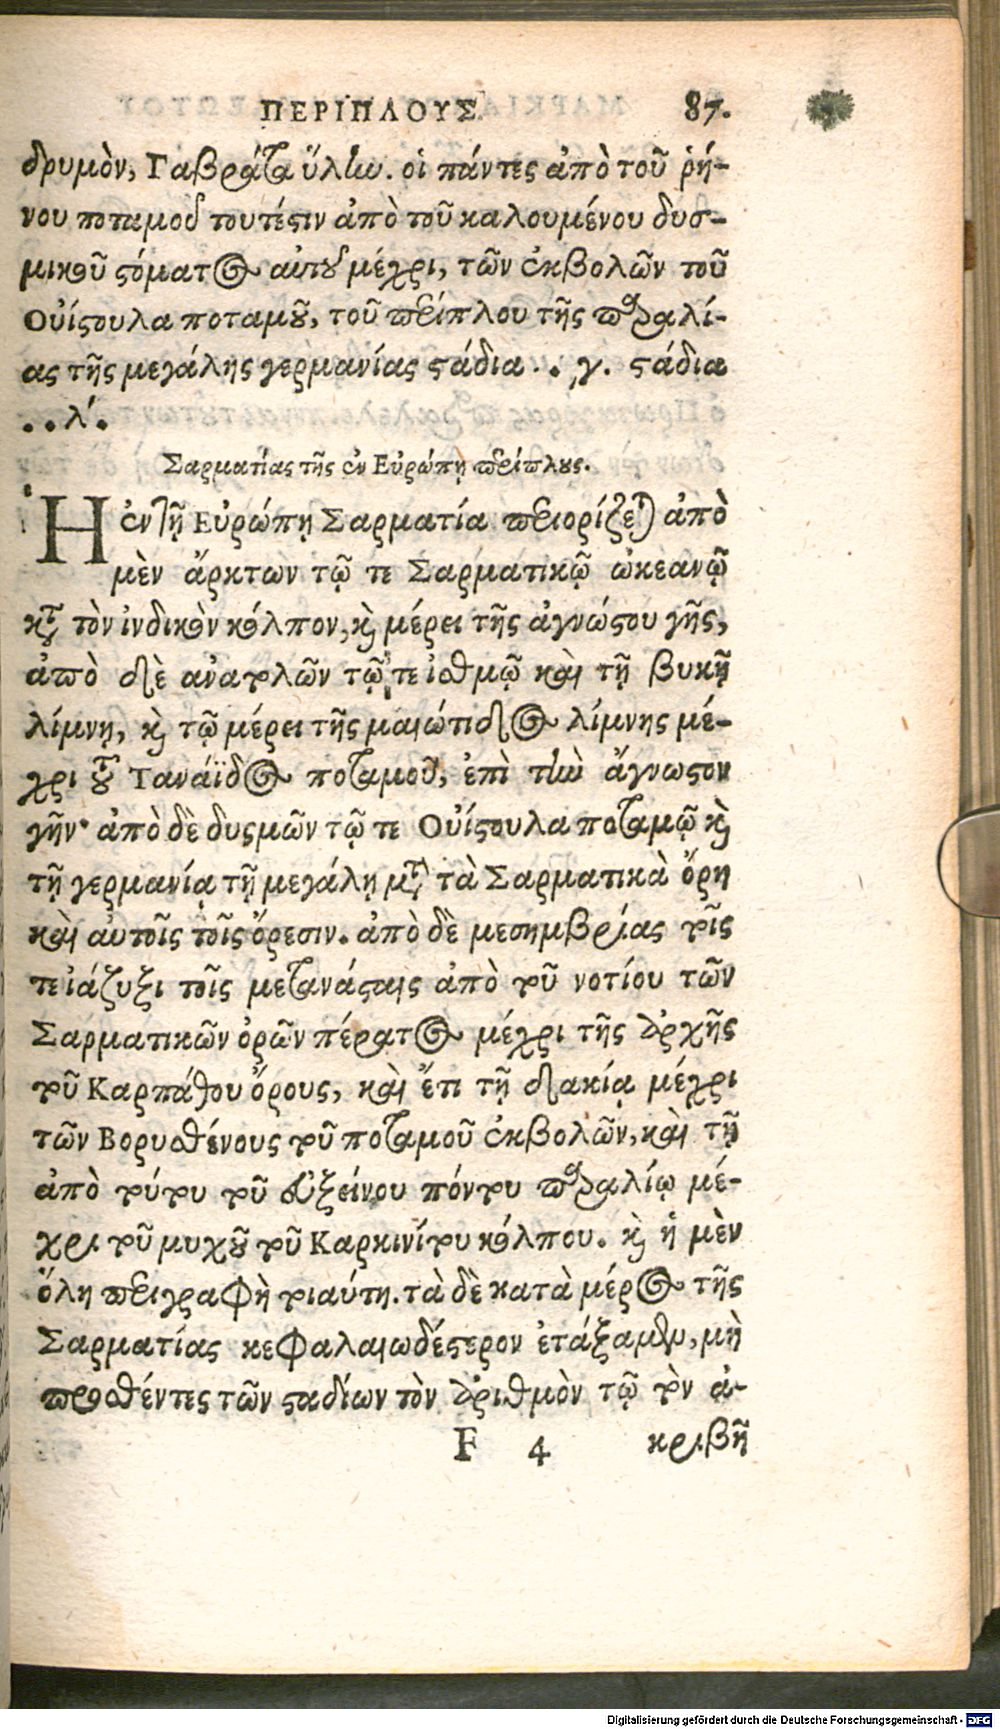 ΠΕΡΙΠΛΟΥΣ 87.
δρυμὸν, Γαβράτα ὕλην. οἱ πάντες ἀπὸ τοῦ ῥή-
νου ποταμοῦ τουτέστιν ἀπὸ τοῦ καλουμένου δυσ-
μικοῦ στόματος αὐτοῦ μέχρι, τῶν ἐκβολῶν τοῦ
Οὐίστουλα ποταμοῦ, τοῦ περίπλου τῆς παραλί-
ας τῆς μεγάλης γερμανίας στάδια . . ͵γ. στάδια
. . λ´.
Σαρματίας τῆς ἐν Εὐρώπῃ περίπλους.
Η ἐν τῇ Εὐρώπῃ Σαρματία περιορίζεται ἀπὸ
μὲν ἄρκτων τῷ τε Σαρματικῷ ὠκεανῷ
κατὰ τὸν ἰνδικὸν κόλπον, καὶ μέρει τῆς ἀγνώστου γῆς,
ἀπὸ δὲ ἀνατολῶν τῷ τε ἰσθμῷ καὶ τῇ βυκῇ
λίμνῃ, καὶ τῷ μέρει τῆς μαιώτιδος λίμνης μέ-
χρι τοῦ Τανάϊδος ποταμοῦ, ἐπὶ τὴν ἄγνωστον
γῆν· ἀπὸ δὲ δυσμῶν τῷ τε Οὐίστουλα ποταμῷ καὶ
τῇ γερμανίᾳ τῇ μεγάλῃ μετὰ τὰ Σαρματικὰ ὄρη
καὶ αὐτοῖς τοῖς ὄρεσιν. ἀπὸ δὲ μεσημβρίας τοῖς
τε ἰάζυξι τοῖς μετανάσταις ἀπὸ τοῦ νοτίου τῶν
Σαρματικῶν ὀρῶν πέρατος μέχρι τῆς ἀρχῆς
τοῦ Καρπάθου ὄρους, καὶ ἔτι τῇ δακίᾳ μέχρι
τῶν Βορυσθένους τοῦ ποταμοῦ ἐκβολῶν, καὶ τῇ
ἀπὸ τούτου τοῦ εὐξείνου πόντου παραλίῳ μέ-
χρι τοῦ μυχοῦ τοῦ Καρκινίτου κόλπου. καὶ ἡ μὲν
ὅλη περιγραφὴ τοιαύτη. τὰ δὲ κατὰ μέρος τῆς
Σαρματίας κεφαλαιωδέστερον ἐτάξαμεν, μὴ
προσθέντες τῶν σταδίων τὸν ἀριθμὸν τῷ τὸν ἀ-
F 4 κριβῆ
Digitalisierung gefördert durch die Deutsche Forschungsgemeinschaft - DFG